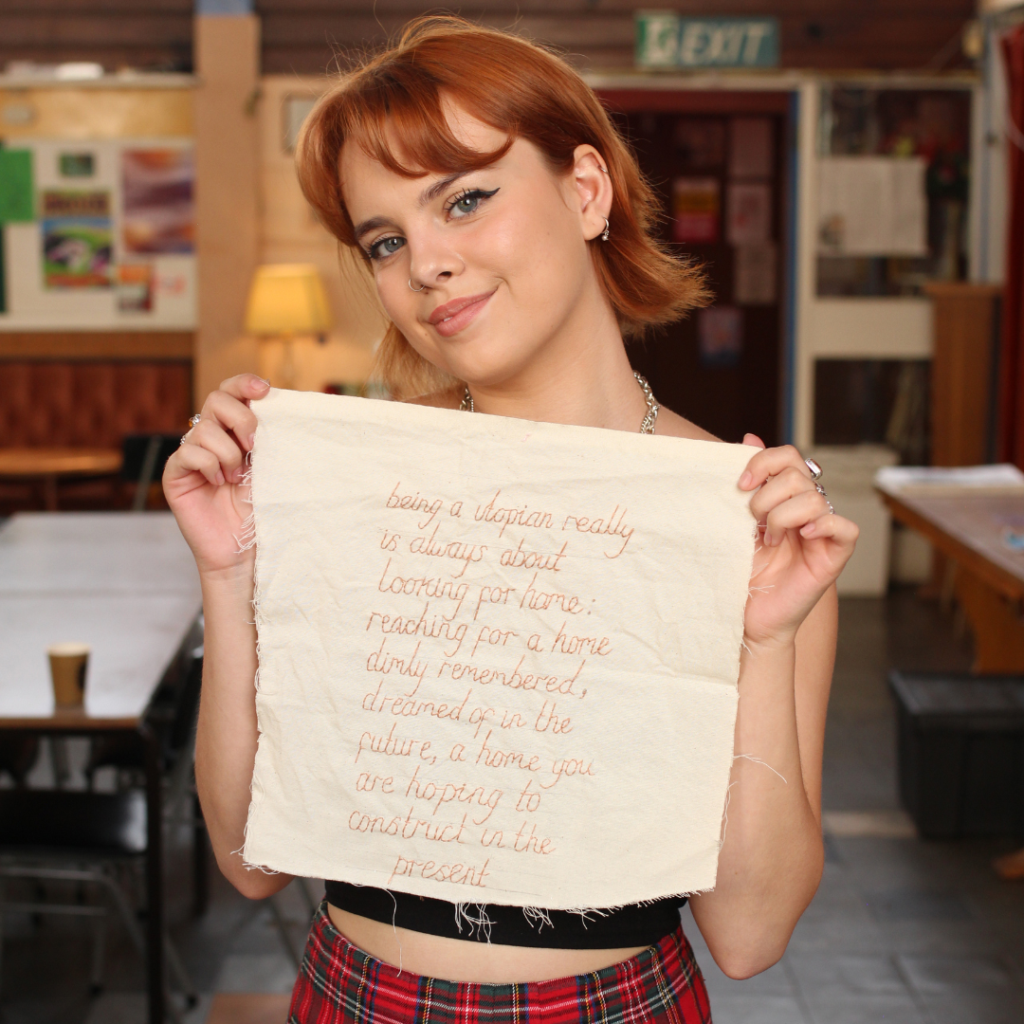 EXIT
being a utopian really
is always about
looking for home:
reaching for a home
dimly remembered,
dreamed of in the
future, a home you
are hoping to
construct in the
present